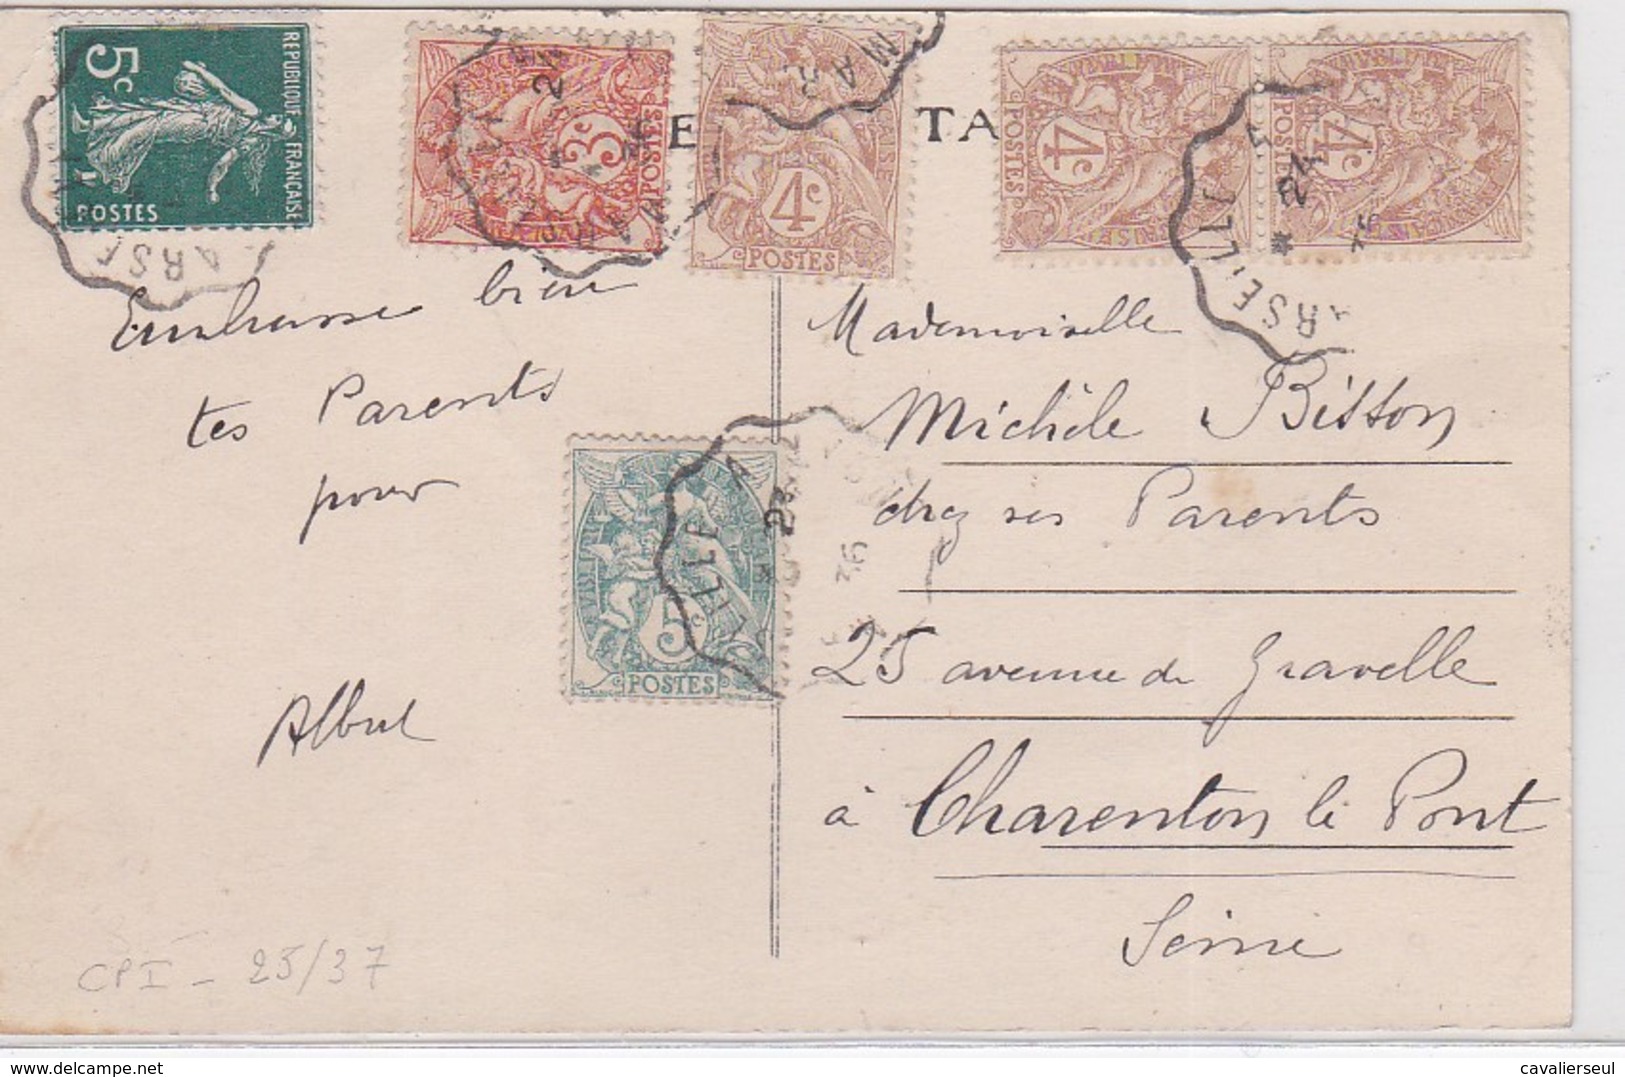 5c
REPUBLIQUE FRANÇAISE
POSTES
3c
POSTES
4c
POSTES
4c
POSTES
4c
POSTES
MAR
E
TA
ARSEILLE
*
24
ARSE
Embrasse bien
tes Parents
pour
Albert
5c
POSTES
ILLE A
23
36
Mademoiselle
Michèle Bisson
chez ses Parents
25 avenue de Gravelle
à Charenton le Pont
Seine
CPI - 25/37
www.delcampe.net
cavalierseul